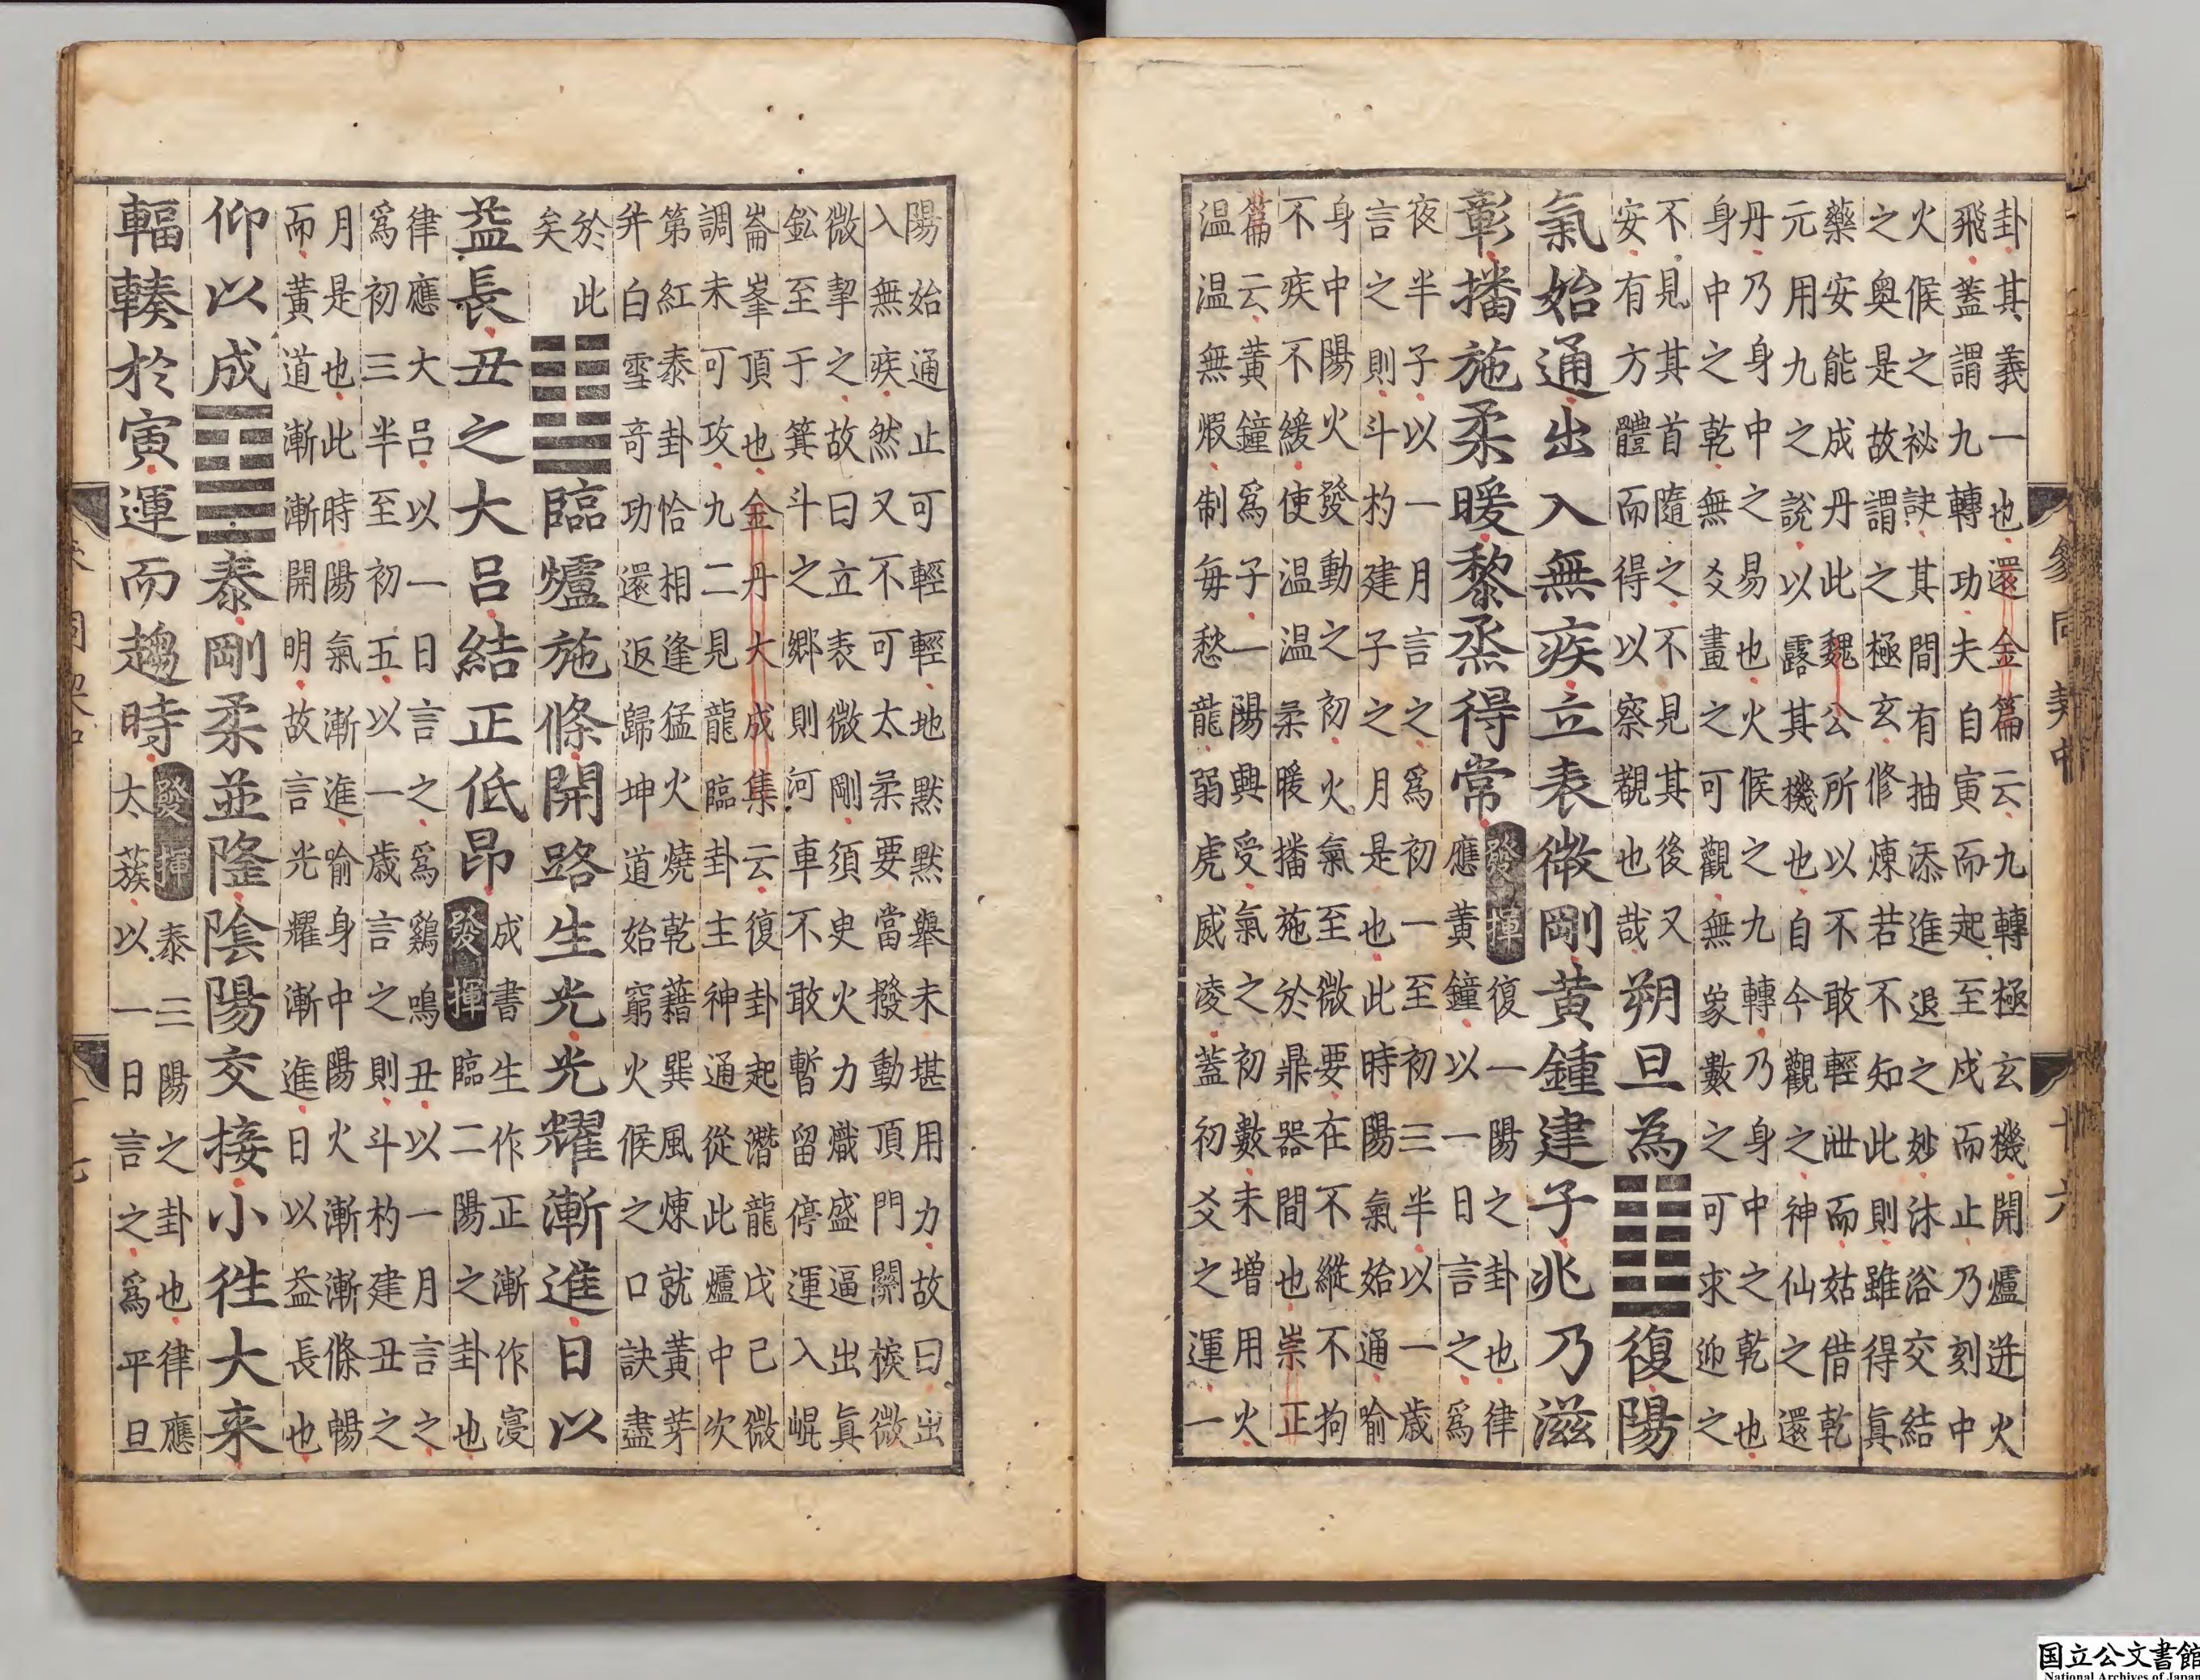 卦其義一也還金篇云九轉極玄機開爐迸火
飛蓋謂九轉功夫自寅而起至戌而止乃刻中
火候之祕訣其間有抽添進退之妙沐浴交結
之奧是故謂之極玄修煉若不知此則雖得真
藥安能成丹此魏公所以不敢輕泄而姑借乾
元用九之說以露其機也自今觀之神仙之還
丹乃身中之易也火候之九轉乃身中之乾也
身中之乾無爻畫之可觀無象數之可求迎之
不見其首隨之不見其後又
安有方體而得以察觀也哉
朔旦為䷗復陽
氣始通出入無疾立表微剛黃鍾建子兆乃滋
彰播施柔暖黎烝得常
發揮
復一陽之卦也律
應黃鐘以一日言之爲
夜半子以一月言之爲初一至初三半以一歲
言之則斗杓建子之月是也此時陽氣始通喻
身中陽火發動之初火氣至微要在不縱不拘
不疾不緩使溫溫柔暖播施於鼎器間也崇正
篇云黃鐘爲子一陽興受氣之初數未增用火
温温無煆制毎愁龍弱虎威凌蓋初爻之運一
參同契中
廿六
陽始通止可輕輕地默默舉未堪用力故曰出
入無疾然又不可太柔要當撥動頂門關捩微
微挈之故曰立表微剛須臾火力熾盛逼出真
鈆至于箕斗之鄉則河車不敢暫留停運入崐
崙峯頂也金丹大成集云復卦起潛龍戊己微
調未可攻九二見龍臨卦主神通從此爐中次
第紅泰卦恰相逢猛火燒乾藉巽風煉就黃芽
并白雪奇功還返歸坤道始窮火候之口訣盡
於此
矣
䷒臨爐施條開路生光光耀漸進日以
益長丑之大呂結正低昂
發揮
成書生作正漸作寖
臨二陽之卦也
律應大呂以一日言之爲鷄鳴丑以一月言之
爲初三半至初五以一歲言之則斗杓建丑之
月是也此時陽氣漸進喻身中陽火漸漸條暢
而黃道漸漸開明故言光耀漸進日以益長也
仰以成䷊泰剛柔並隆陰陽交接小徃大来
輻輳於寅運而趨時
發揮
泰三陽之卦也律應
太蔟以一日言之爲平旦
国立公文書館
National Archives of Japan